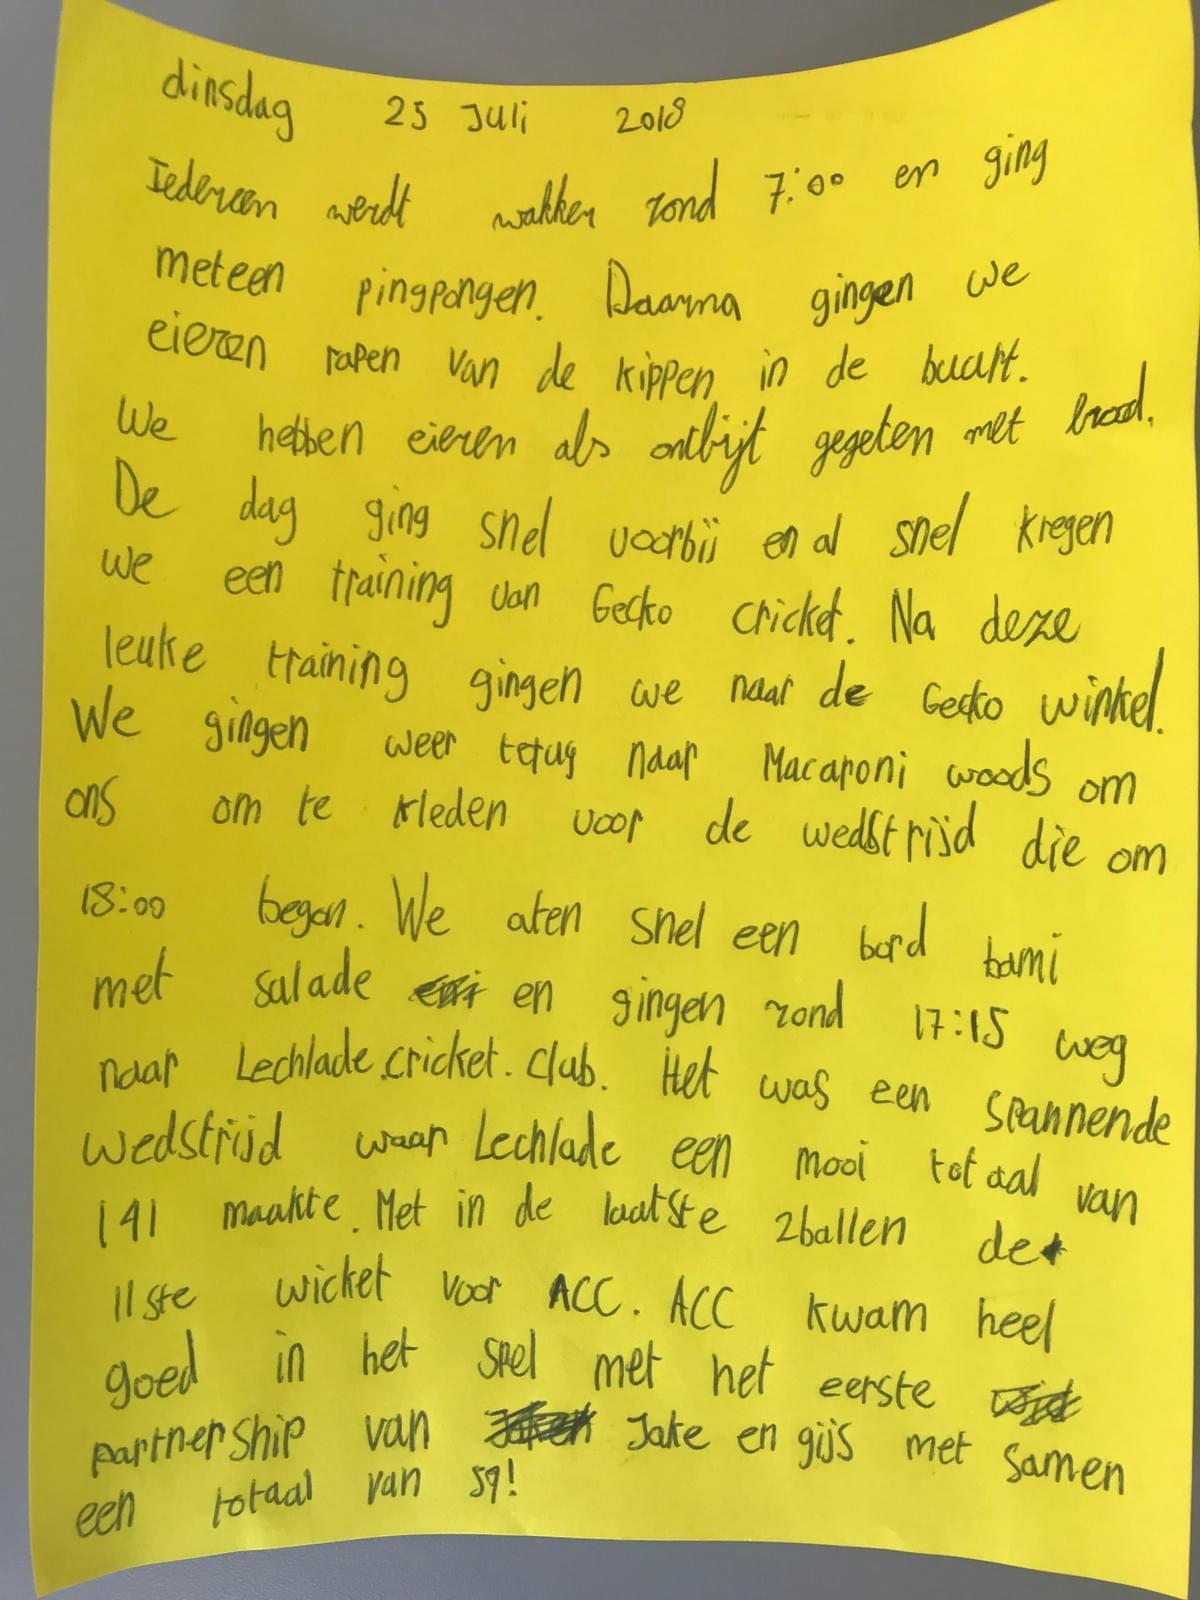 dinsdag 25 Juli 2018
Iedereen werdt wakker rond 7:00 en ging
meteen pingpongen. Daarna gingen we
eieren rapen van de kippen in de buurt.
We hebben eieren als ontbijt gegeten met brood.
De dag ging snel voorbij en al snel kregen
we een training van Gecko cricket. Na deze
leuke training gingen we naar de Gecko winkel.
We gingen weer terug naar Macaroni woods om
ons om te kleden voor de wedstrijd die om
18:00 began. We aten snel een bord bami
met salade en gingen rond 17:15 weg
naar Lechlade.cricket.club. Het was een spannende
wedstrijd waar Lechlade een mooi totaal van
141 maakte. Met in de laatste 2ballen de
11ste wicket voor ACC. ACC kwam heel
goed in het spel met het eerste
partnership van Jake en gijs met samen
een totaal van 59!